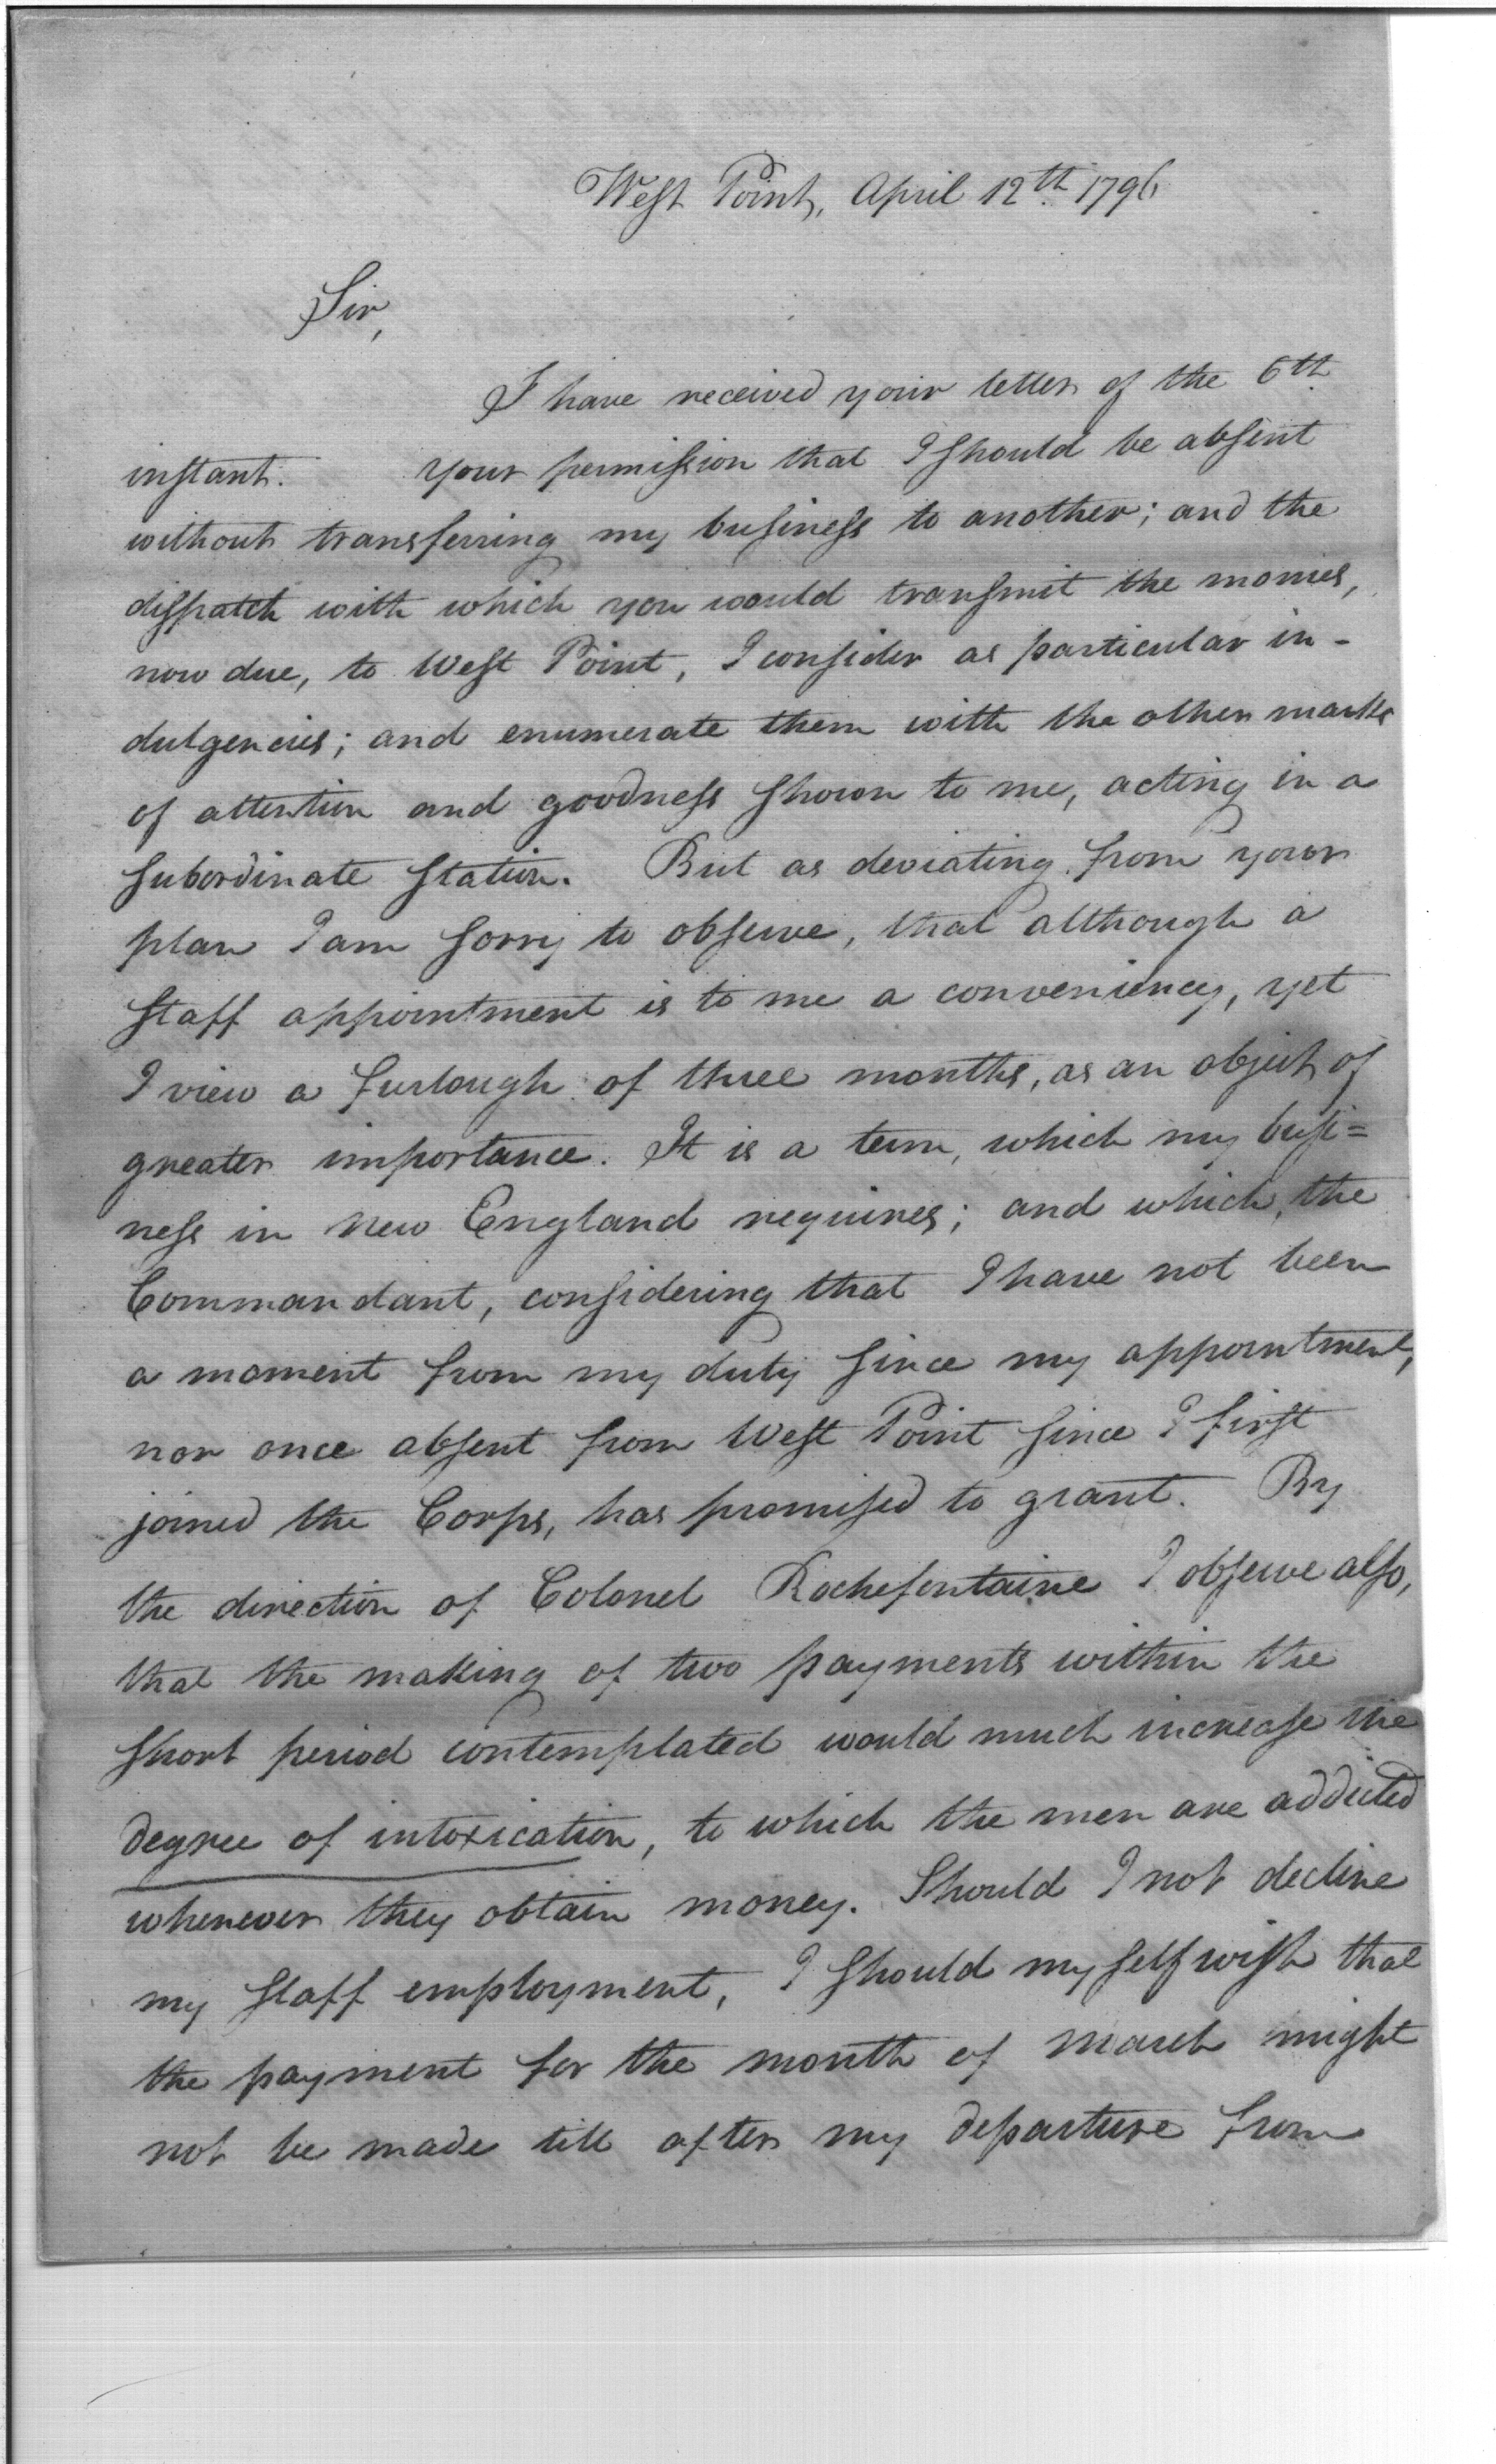 West Point, April 12th 1796
Sir,
I have received your letter of the 6th
instant. Your permission that I should be absent
without transferring my business to another; and the
dispatch with which you would transmit the monies,
now due, to West Point, I consider as particular in-
dulgencies; and enumerate them with the other marks
of attention and goodness shown to me, acting in a
subordinate station. But as deviating from your
plan I am sorry to observe, that although a
staff appointment is to me a conveniency, yet
I view a furlough of three months, as an object of
greater importance. It is a term, which my busi=
ness in New England requires; and which, the
Commandant, considering that I have not been
a moment from my duty since my appointment,
nor once absent from West Point since I first
joined the Corps, has promised to grant. By
the direction of Colonel Rochefontaine I observe also,
that the making of two payments within the
short period contemplated would much increase the
degree of intoxication, to which the men are addicted
whenever they obtain money. Should I not decline
my staff employment, I should myself wish that
the payment for the month of March might
not be made till after my departure from